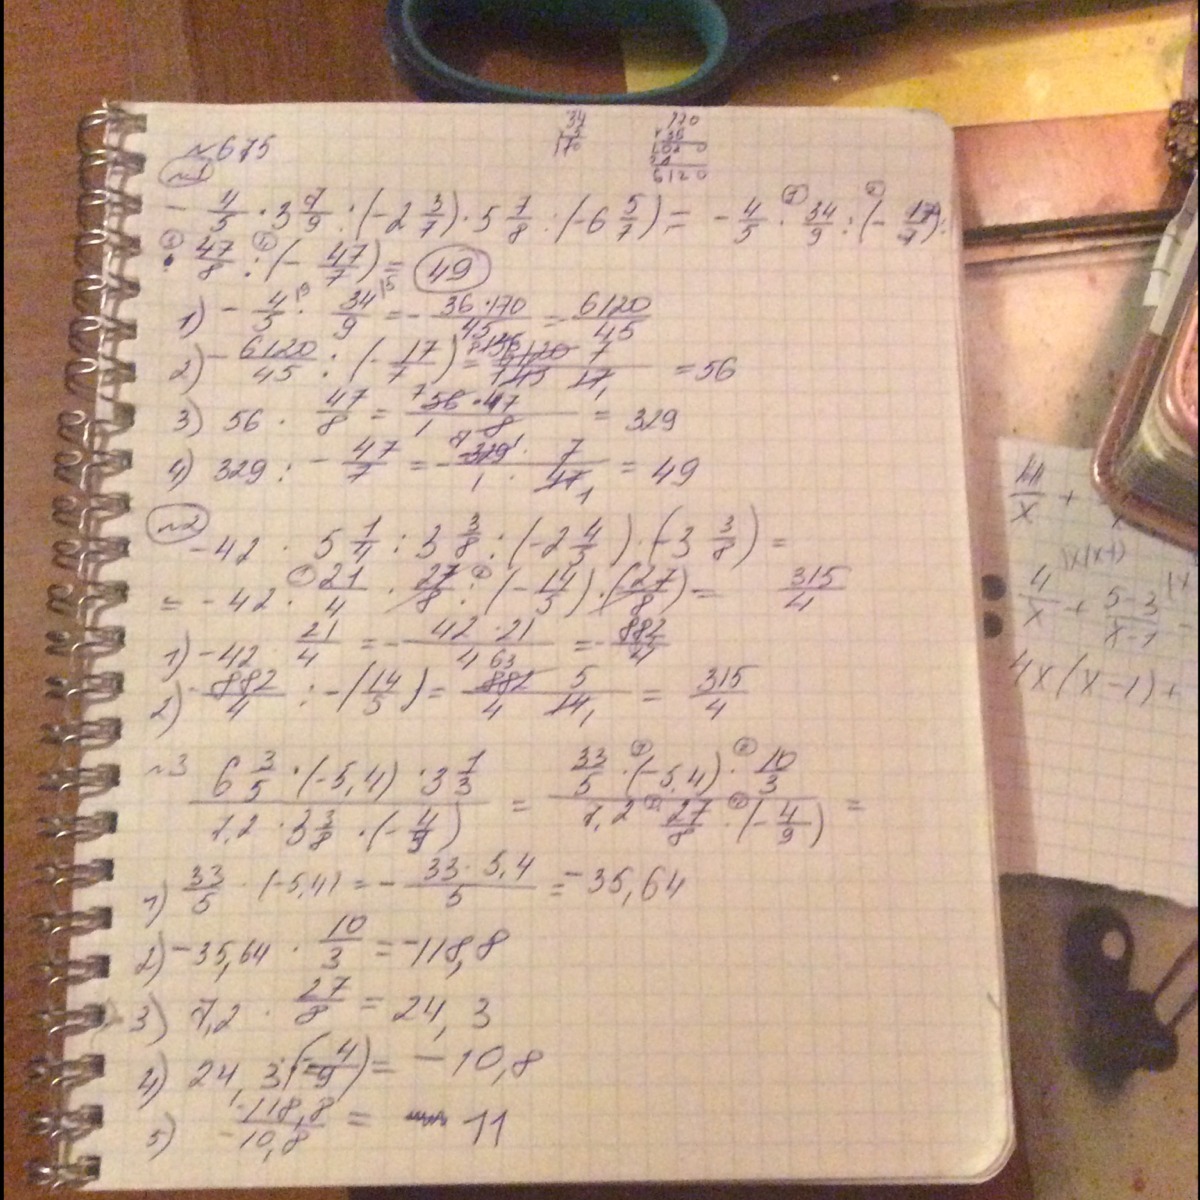 34
5
170
170
36
6120
~675
~1
- 4/5 · 3 7/9 : (-2 3/7) · 5 7/8 : (-6 5/7) = - 4/5 · 34/9 : (- 17/7) ·
· 47/8 : (- 47/7) = 49
1) - 4/5 · 34/9 = - 36·170/45 = 6120/45
2) - 6120/45 : (- 17/7) = 6120 7/45 17 = 56
3) 56 · 47/8 = 56·47/8 = 329
4) 329 : - 47/7 = - 329 · 7/1 · 47 = 49
~2 -42 · 5 1/4 : 3 3/8 : (-2 4/5) · (-3 3/8) =
= -42 · 21/4 · 27/8 : (- 14/5) · (27/8) = 315/4
1) -42 · 21/4 = - 42·21/4 = - 882/4
2) - 882/4 : -(14/5) = 882 5/4 14 = 315/4
~3 6 3/5 · (-5,4) · 3 1/3 / 7,2 · 3 3/8 · (- 4/9) = 33/5 · (-5,4) · 10/3 / 7,2 · 27/8 · (- 4/9) =
1) 33/5 · (-5,4) = - 33·5,4/5 = -35,64
2) -35,64 · 10/3 = -118,8
3) 7,2 · 27/8 = 24,3
4) 24,3 · (- 4/9) = -10,8
5) -118,8/-10,8 = 11
4/x + 
x(x-1)
4/x + 5-3/x-1
4x(x-1)+